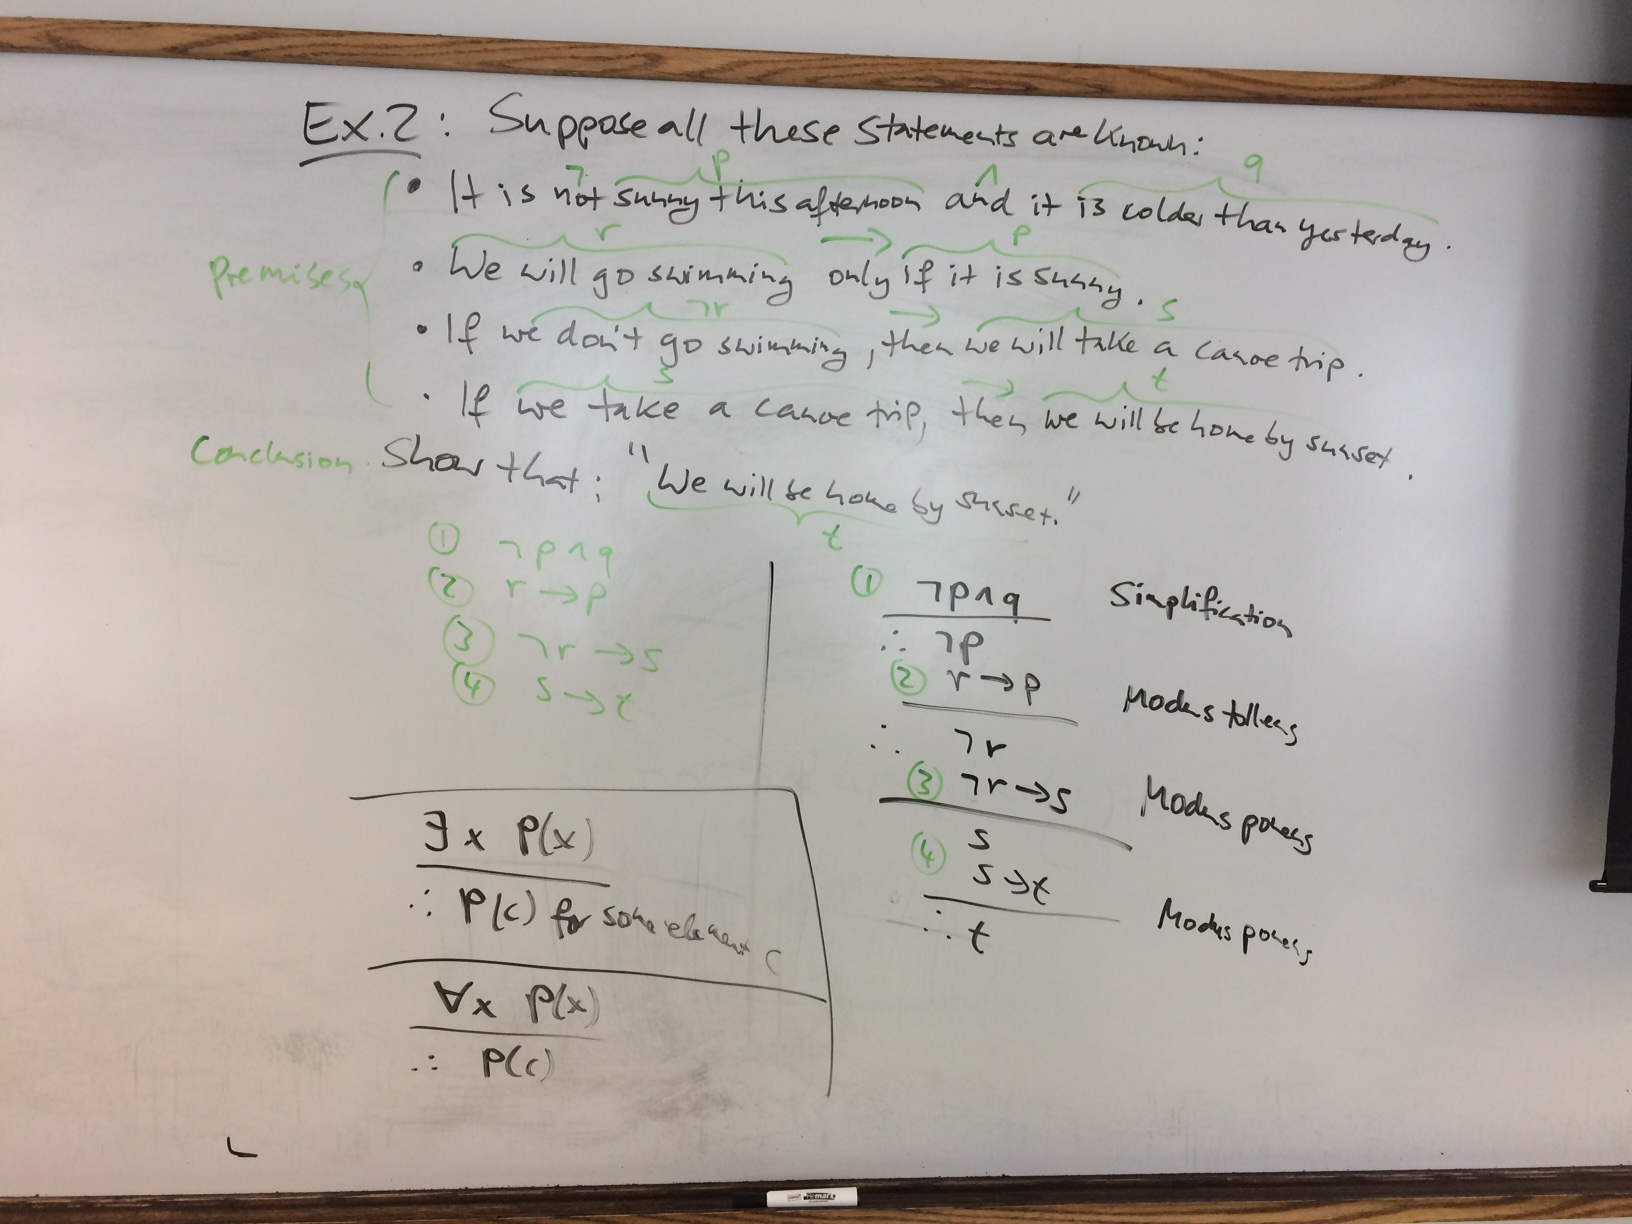 Ex.2: Suppose all these statements are known:
¬ p ∧ q
• It is not sunny this afternoon and it is colder than yesterday.
r → p
• We will go swimming only if it is sunny.
¬r → s
• If we don't go swimming, then we will take a canoe trip.
s → t
• If we take a canoe trip, then we will be home by sunset.
Premises
Conclusion Show that: "We will be home by sunset."
t
① ¬p∧q
② r→p
③ ¬r→s
④ s→t
① ¬p∧q Simplification
∴ ¬p
② r→p Modus tollens
∴ ¬r
③ ¬r→s Modus ponens
s
④ s→t Modus ponens
∴ t
∃x P(x)
∴ P(c) for some element c
∀x P(x)
∴ P(c)